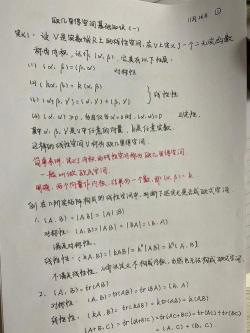 欧几里得空间基础知识 (一)
11月26日 ①
定义1. 设V是实数域R上的线性空间, 在V上定义了一个二元实函数
称为内积, 记作 (α, β), 它具有以下性质:
(1) (α, β) = (β, α) 对称性
(2) (kα, β) = k(α, β)
(3) (α+β, γ) = (α, γ) + (β, γ)
线性性
(4) (α, α) ≥ 0, 当且仅当 α=0 时, (α, α)=0
其中 α, β, γ 是V中任意的向量, k是任意实数
这样的线性空间V称为欧几里得空间.
简单来讲, 定义了内积的线性空间称为欧几里得空间.
一般叫做 欧式空间
例 在n阶实矩阵构成的线性空间中, 判断下述定义是否成欧式空间
1. (A, B) = |AB|
对称性: (A, B) = |AB| = |BA| = (B, A)
满足对称性.
线性性: (kA, B) = |kAB| = kⁿ|AB| = kⁿ(A, B)
不满足线性性,
2. (A, B) = tr(AB)
对称性: (A, B) = tr(AB) = tr(BA) = (B, A)
线性性: (kA, B) = tr(kAB) = k tr(AB) = k(A, B)
(A+B, C) = tr((A+B)C) = tr(AC+BC) = tr(AC) + tr(BC)
= (A, C) + (B, C)